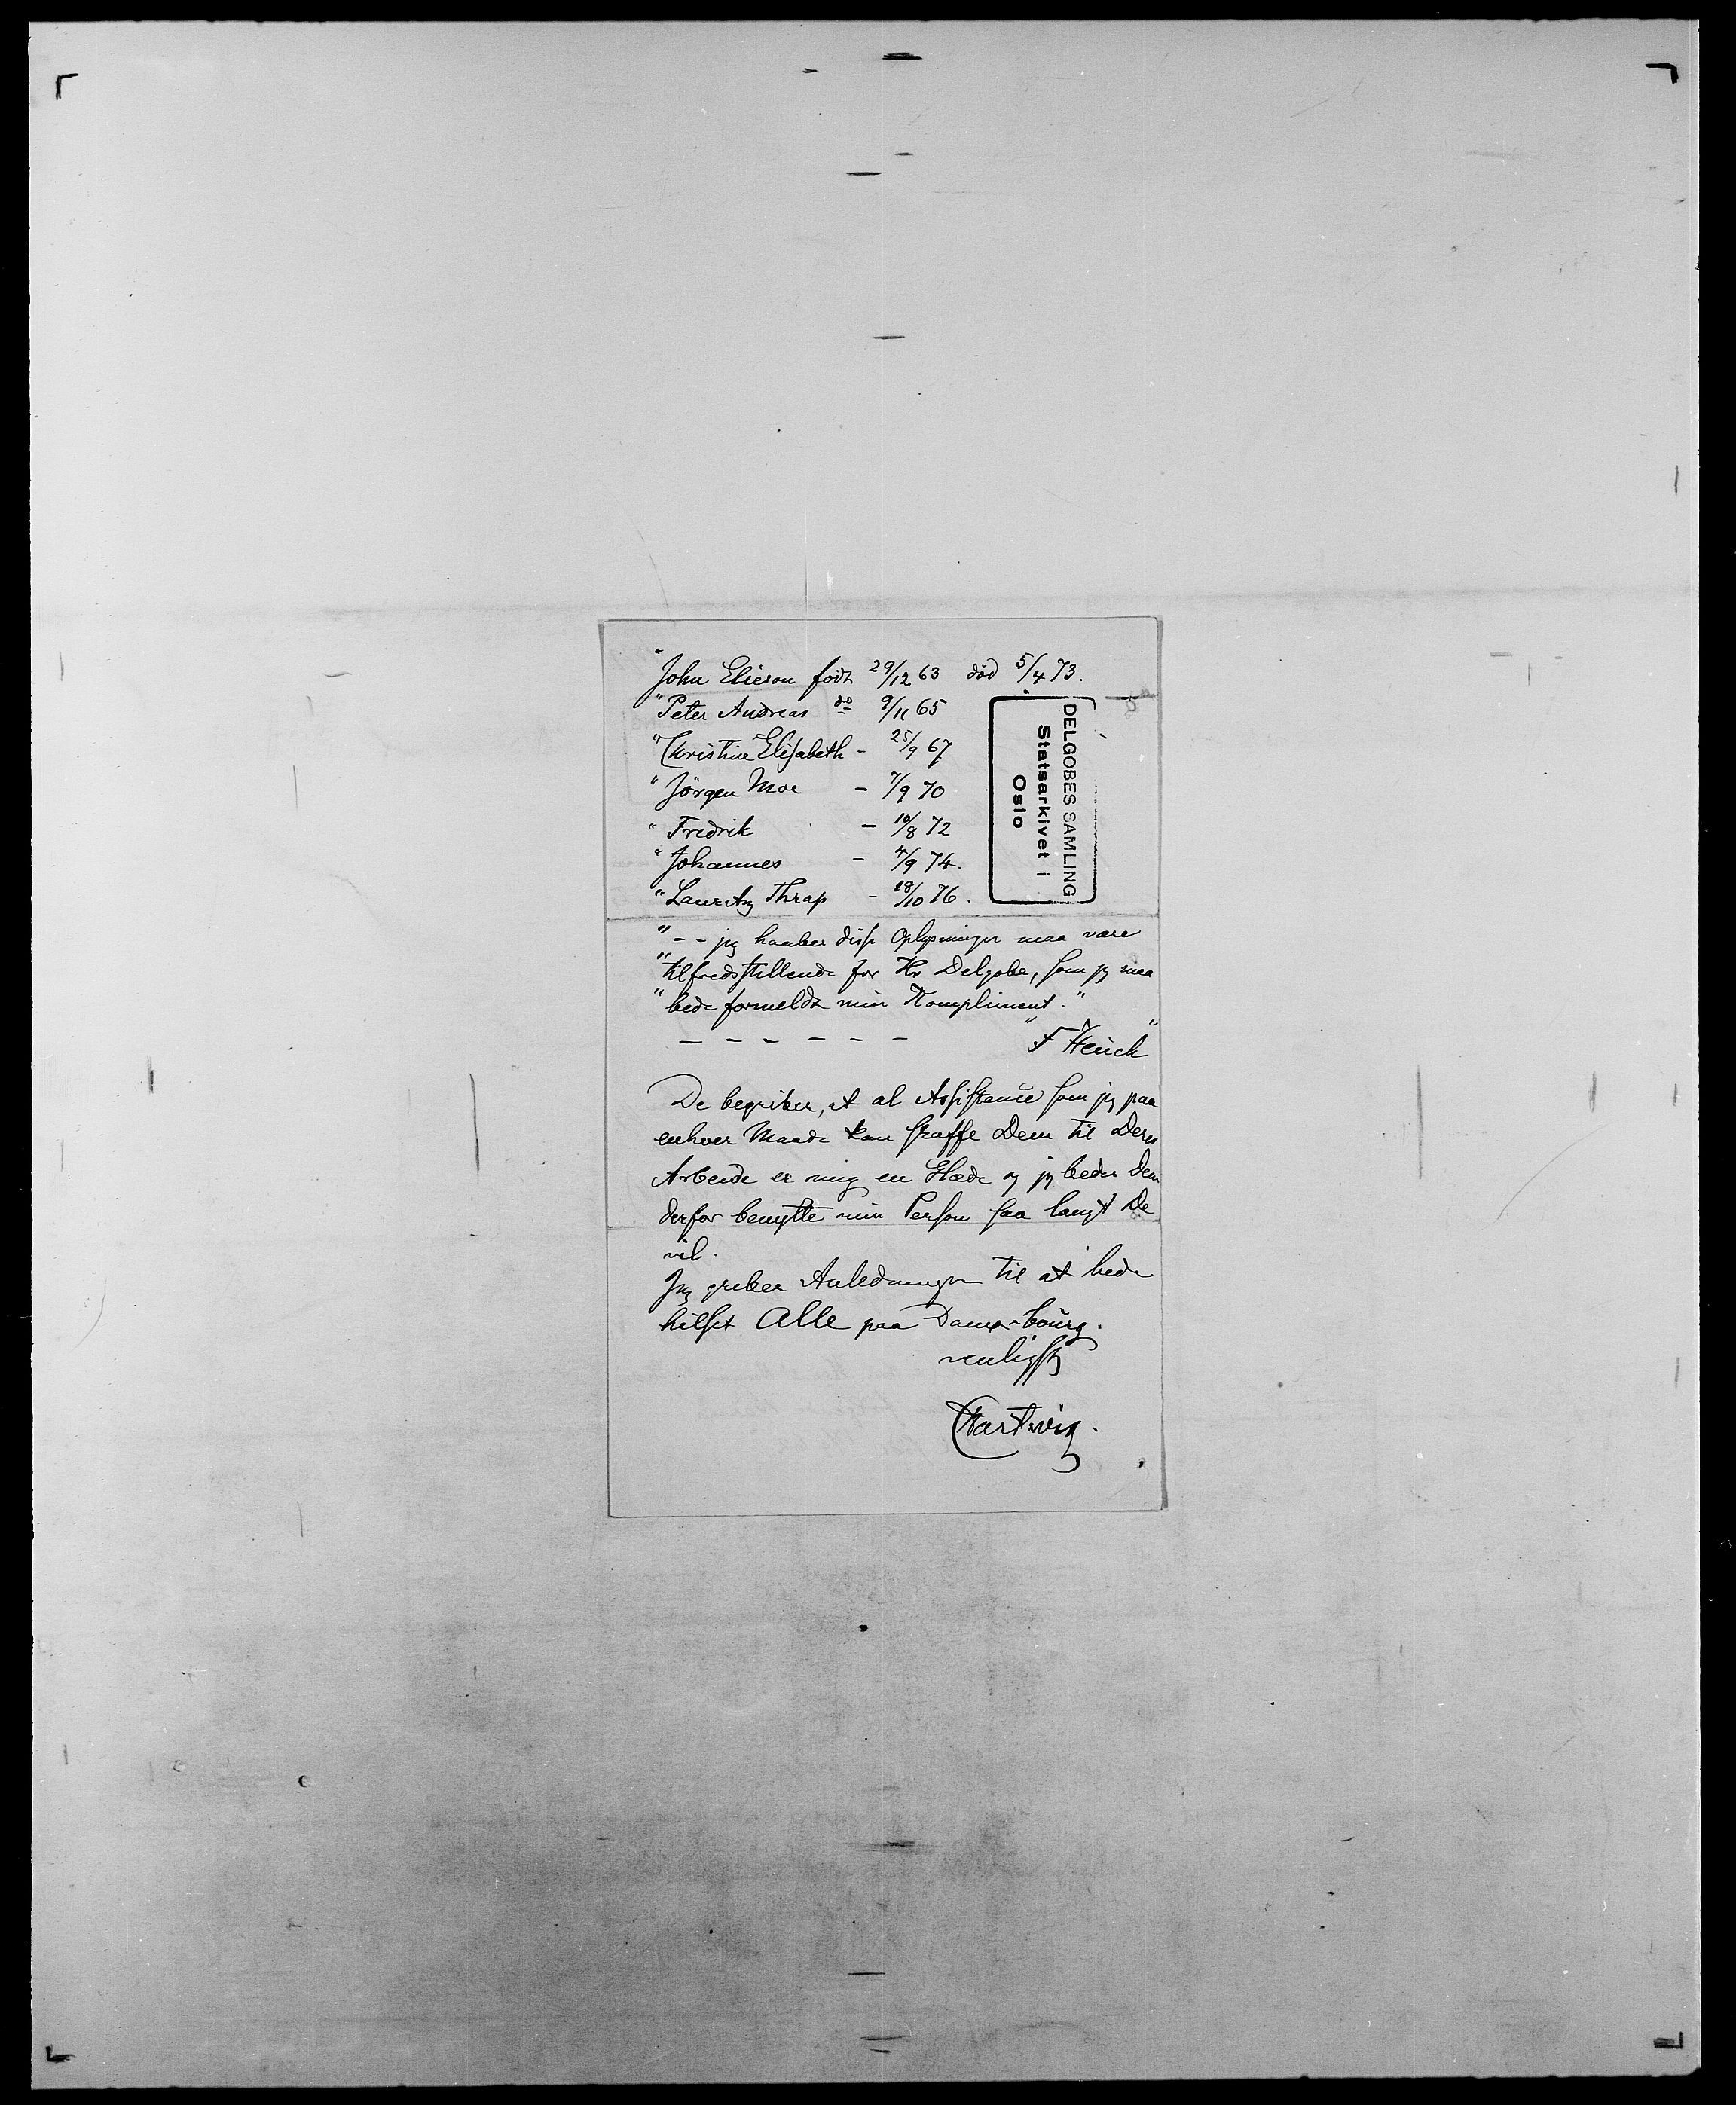 "John Elieson født 29/12 63 død 5/4 73.
"Peter Andreas do 9/11 65
"Christine Elisabeth - 25/9 67
"Jörgen Moe - 7/9 70
"Fredrik - 10/8 72
"Johannes - 4/9 74.
"Lauritz Thrap - 18/10 76.
DELGOBES SAMLING
Statsarkivet i
Oslo
"- - jeg haaber disse Oplysninger maa være
"tilfredsstillende for Hr Delgobe, som jeg maa
"bede formeldt min Kompliment."
- - - - - - "F Heuch"
De begriber, at al Assistance som jeg paa
enhver Maade kan skaffe Dem til Deres
Arbeide er mig en Glæde og jeg beder Dem
derfor benytte min Person saa langt De
vil.
Jeg griber Anledningen til at bede
hilset Alle paa
venligst
Hartwig.